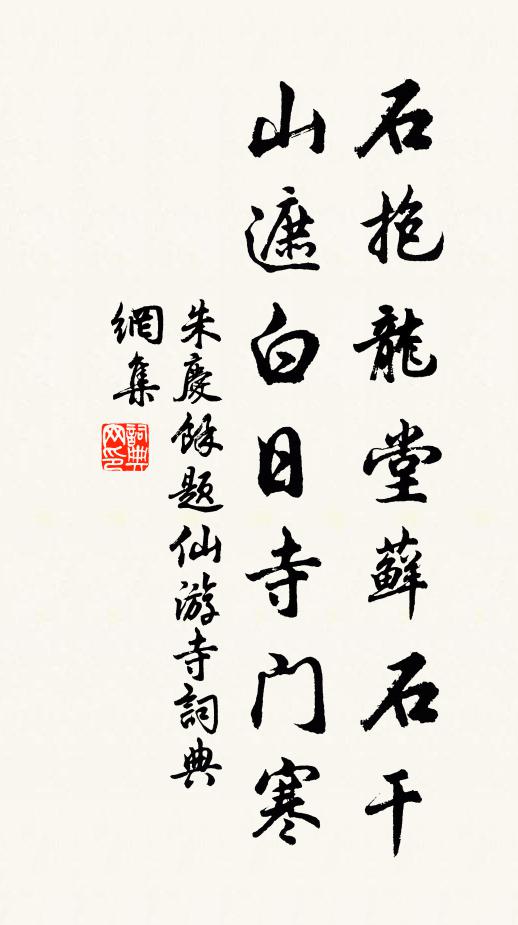 石抱龍堂蘚石干
山遮白日寺門寒
朱慶餘題仙游寺詞典
網集
詞典网印